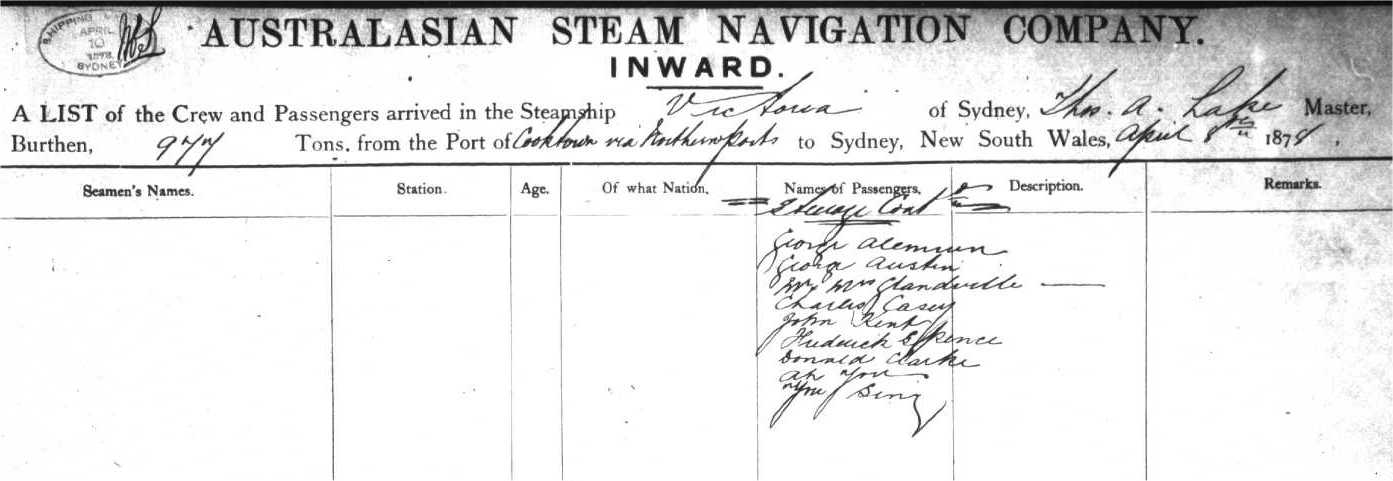 SHIPPING
APRIL
10
1878
SYDNEY
AUSTRALASIAN STEAM NAVIGATION COMPANY.
INWARD.
A LIST of the Crew and Passengers arrived in the Steamship Victoria of Sydney, Thos. A. Lake Master,
Burthen, 977 Tons, from the Port of Cooktown via Northern Ports to Sydney, New South Wales, April 1878.
Seamen's Names. Station. Age. Of what Nation, Names of Passengers, Description. Remarks.
Steerage Cont
George
George Austin
Mr Mrs Glandville
Charles Casey
John Kent
Frederick Spence
Donald Clarke
Ah You
Sing